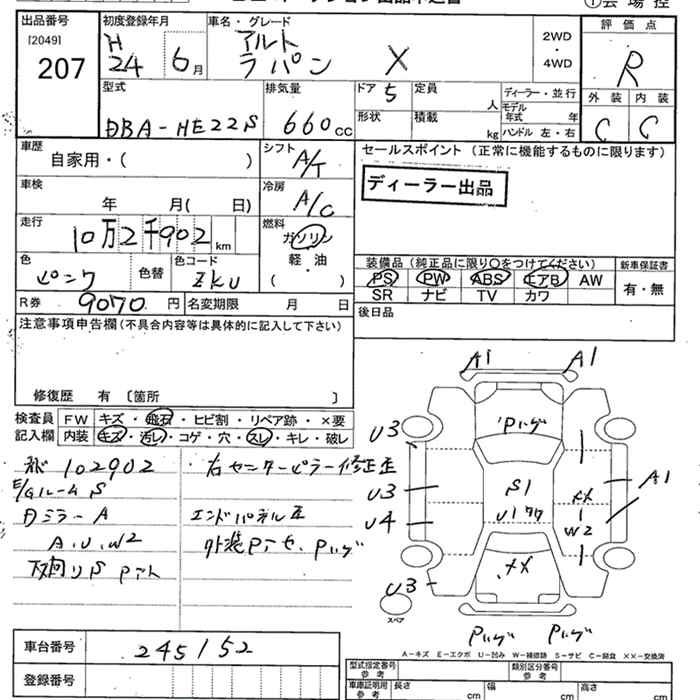 出品番号
[2049]
207
初度登録年月
H
24 6月
車名・グレード
アルト
ラパン X
2WD
・
4WD
評価点
R
外装 内装
C C
型式
DBA-HE22S
排気量
660cc
ドア 5
形状
定員 人
積載 kg
ディーラー・並行
モデル年式 年
ハンドル 左・右
車歴
自家用・( )
シフト
A/T
車検
年 月( 日)
冷房
A/C
走行
10万2千902 km
燃料
ガソリン
軽・油
( )
色
ピンク
色替
色コード
ZKU
R券 9070 円
名変期限 月 日
セールスポイント (正常に機能するものに限ります)
ディーラー出品
装備品(純正品に限り○をつけてください)
PS PW ABS エアB AW
SR ナビ TV カワ
新車保証書
有・無
後日品
注意事項申告欄(不具合内容等は具体的に記入して下さい)
修復歴 有 〔箇所 〕
検査員
記入欄
FW キズ・飛石・ヒビ割・リペア跡・×要
内装 キズ・汚レ・コゲ・穴・スレ・キレ・破レ
102902
E/Gルーム S
DミラーA
A、U、W2
下回りS Pアト
右センターピラー修正歪
エンドパネル歪
外装Pアセ、Pハゲ
A1 A1
U3
Pハゲ
U3
S1
A1
U4
××
W2
××
U3
Pハゲ Pハゲ
スペア
A-キズ E-エクボ U-凹み W-補修跡 S-サビ C-腐食 ××-交換済
車台番号 245152
登録番号
型式指定番号 参考
類別区分番号 参考
車庫証明用 参考
長さ cm
幅 cm
高さ cm